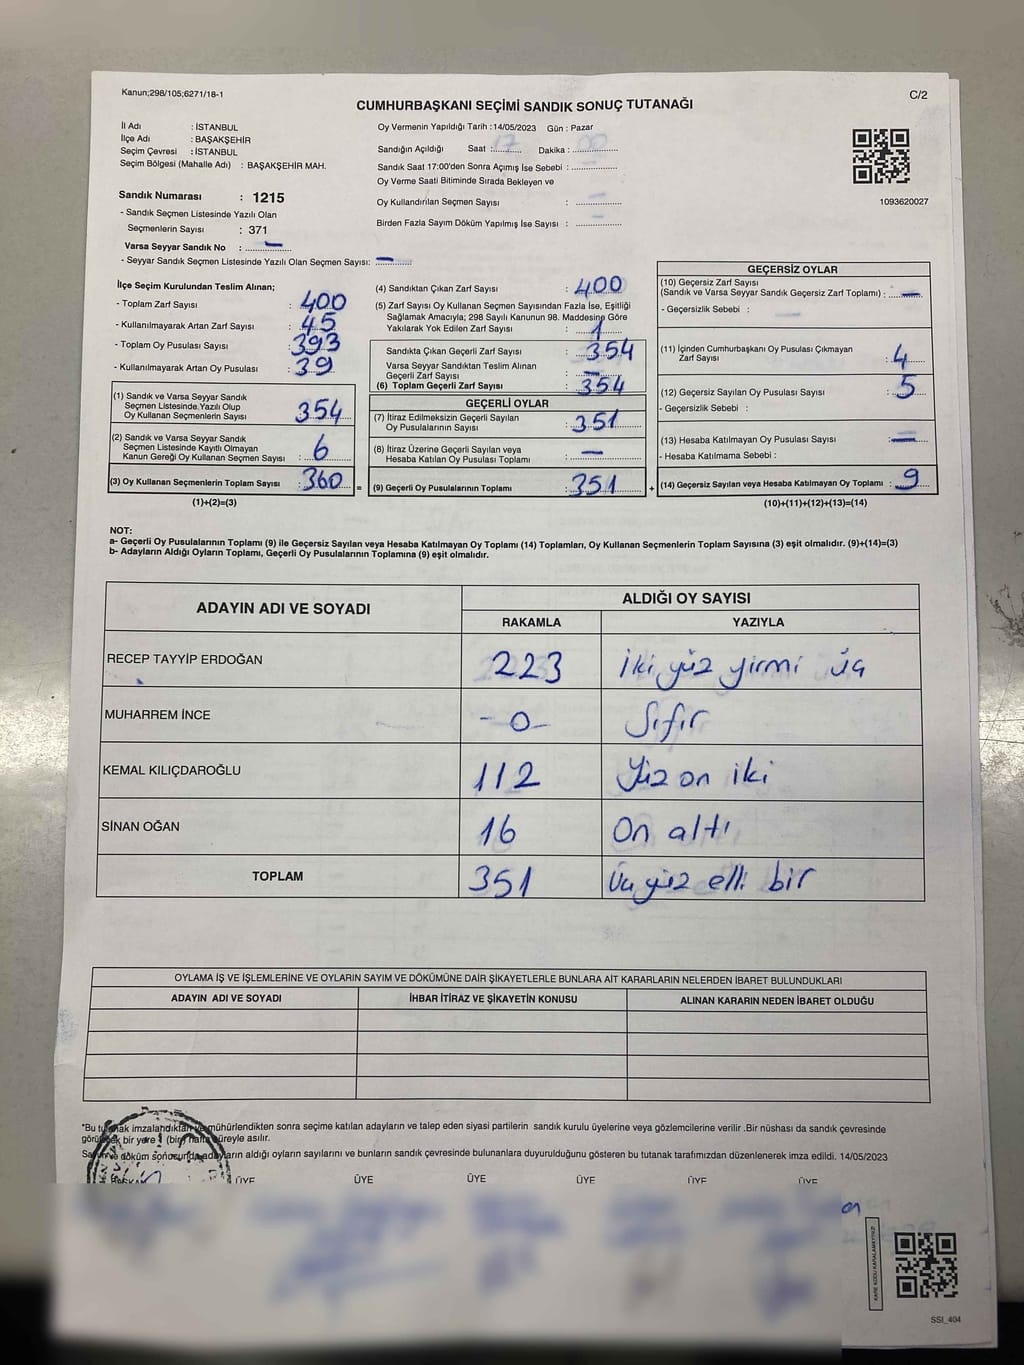 Kanun;298/105;6271/18-1
C/2
CUMHURBAŞKANI SEÇİMİ SANDIK SONUÇ TUTANAĞI
İl Adı : İSTANBUL
İlçe Adı : BAŞAKŞEHİR
Seçim Çevresi : İSTANBUL
Seçim Bölgesi (Mahalle Adı) : BAŞAKŞEHİR MAH.
Sandık Numarası : 1215
- Sandık Seçmen Listesinde Yazılı Olan
Seçmenlerin Sayısı : 371
Varsa Seyyar Sandık No : —
- Seyyar Sandık Seçmen Listesinde Yazılı Olan Seçmen Sayısı: —
Oy Vermenin Yapıldığı Tarih :14/05/2023 Gün : Pazar
Sandığın Açıldığı Saat : 17 Dakika :
Sandık Saat 17:00'den Sonra Açımış İse Sebebi :
Oy Verme Saati Bitiminde Sırada Bekleyen ve
Oy Kullandırılan Seçmen Sayısı : —
Birden Fazla Sayım Döküm Yapılmış İse Sayısı : —
1093620027
İlçe Seçim Kurulundan Teslim Alınan;
- Toplam Zarf Sayısı : 400
- Kullanılmayarak Artan Zarf Sayısı : 45
- Toplam Oy Pusulası Sayısı : 393
- Kullanılmayarak Artan Oy Pusulası : 39
(1) Sandık ve Varsa Seyyar Sandık
Seçmen Listesinde Yazılı Olup
Oy Kullanan Seçmenlerin Sayısı : 354
(2) Sandık ve Varsa Seyyar Sandık
Seçmen Listesinde Kayıtlı Olmayan
Kanun Gereği Oy Kullanan Seçmen Sayısı : 6
(3) Oy Kullanan Seçmenlerin Toplam Sayısı : 360 =
(1)+(2)=(3)
(4) Sandıktan Çıkan Zarf Sayısı : 400
(5) Zarf Sayısı Oy Kullanan Seçmen Sayısından Fazla İse, Eşitliği
Sağlamak Amacıyla; 298 Sayılı Kanunun 98. Maddesine Göre
Yakılarak Yok Edilen Zarf Sayısı : 1
Sandıkta Çıkan Geçerli Zarf Sayısı : 354
Varsa Seyyar Sandıktan Teslim Alınan
Geçerli Zarf Sayısı : —
(6) Toplam Geçerli Zarf Sayısı : 354
GEÇERLİ OYLAR
(7) İtiraz Edilmeksizin Geçerli Sayılan
Oy Pusulalarının Sayısı : 351
(8) İtiraz Üzerine Geçerli Sayılan veya
Hesaba Katılan Oy Pusulası Toplamı : —
(9) Geçerli Oy Pusulalarının Toplamı : 351 +
GEÇERSİZ OYLAR
(10) Geçersiz Zarf Sayısı
(Sandık ve Varsa Seyyar Sandık Geçersiz Zarf Toplamı) : —
- Geçersizlik Sebebi : —
(11) İçinden Cumhurbaşkanı Oy Pusulası Çıkmayan
Zarf Sayısı : 4
(12) Geçersiz Sayılan Oy Pusulası Sayısı : 5
- Geçersizlik Sebebi :
(13) Hesaba Katılmayan Oy Pusulası Sayısı : —
- Hesaba Katılmama Sebebi :
(14) Geçersiz Sayılan veya Hesaba Katılmayan Oy Toplamı : 9
(10)+(11)+(12)+(13)=(14)
NOT:
a- Geçerli Oy Pusulalarının Toplamı (9) ile Geçersiz Sayılan veya Hesaba Katılmayan Oy Toplamı (14) Toplamları, Oy Kullanan Seçmenlerin Toplam Sayısına (3) eşit olmalıdır. (9)+(14)=(3)
b- Adayların Aldığı Oyların Toplamı, Geçerli Oy Pusulalarının Toplamına (9) eşit olmalıdır.
ADAYIN ADI VE SOYADI
ALDIĞI OY SAYISI
RAKAMLA YAZIYLA
RECEP TAYYİP ERDOĞAN 223 İki yüz yirmi üç
MUHARREM İNCE -0- Sıfır
KEMAL KILIÇDAROĞLU 112 Yüz on iki
SİNAN OĞAN 16 On altı
TOPLAM 351 Üç yüz elli bir
OYLAMA İŞ VE İŞLEMLERİNE VE OYLARIN SAYIM VE DÖKÜMÜNE DAİR ŞİKAYETLERLE BUNLARA AİT KARARLARIN NELERDEN İBARET BULUNDUKLARI
ADAYIN ADI VE SOYADI İHBAR İTİRAZ VE ŞİKAYETİN KONUSU ALINAN KARARIN NEDEN İBARET OLDUĞU
*Bu tutanak imzalandıktan ve mühürlendikten sonra seçime katılan adayların ve talep eden siyasi partilerin sandık kurulu üyelerine veya gözlemcilerine verilir .Bir nüshası da sandık çevresinde
görülecek bir yere 1 (bir) hafta süreyle asılır.
Sayım ve döküm sonucunda adayların aldığı oyların sayılarını ve bunların sandık çevresinde bulunanlara duyurulduğunu gösteren bu tutanak tarafımızdan düzenlenerek imza edildi. 14/05/2023
BAŞKAN ÜYE ÜYE ÜYE ÜYE ÜYE ÜYE
KARE KODU KARALAMAYINIZ!
SSI_404